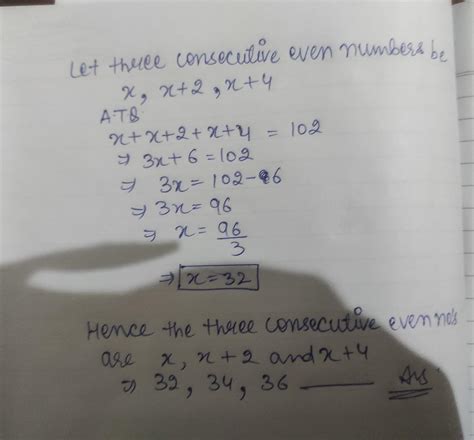 Let three consecutive even numbers be
x, x+2, x+4
ATS
x+x+2+x+4 = 102
⇒ 3x+6 = 102
⇒ 3x = 102-6
⇒ 3x = 96
⇒ x = 96/3
⇒ x = 32
Hence the three consecutive even no's
are x, x+2 and x+4
⇒ 32, 34, 36 —— Ans